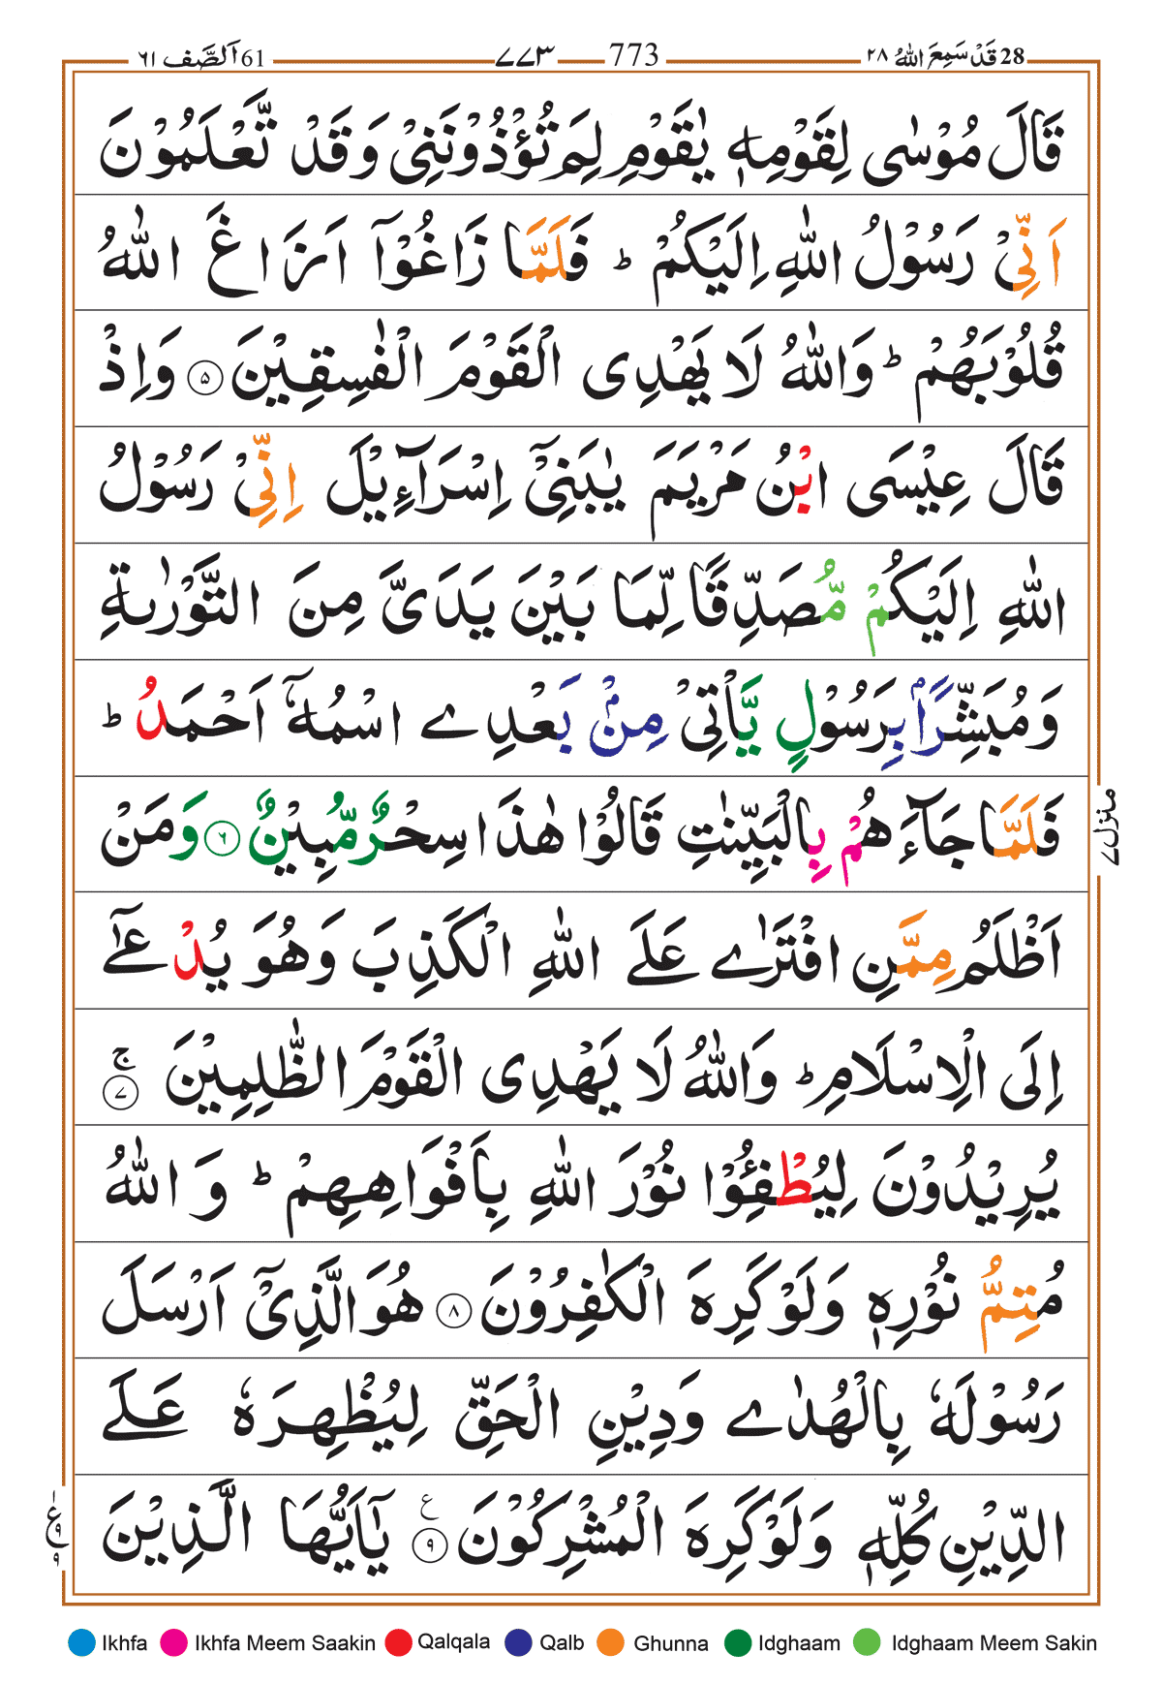 61 اَلصَّف ٦١ ٧٧٣ 773 28 قَدْ سَمِعَ اللّٰهُ ٢٨
قَالَ مُوْسٰى لِقَوْمِهٖ يٰقَوْمِ لِمَ تُؤْذُوْنَنِىْ وَ قَدْ تَّعْلَمُوْنَ
اَنِّىْ رَسُوْلُ اللّٰهِ اِلَيْكُمْ ؕ فَلَمَّا زَاغُوْۤا اَزَاغَ اللّٰهُ
قُلُوْبَهُمْ ؕ وَاللّٰهُ لَا يَهْدِى الْقَوْمَ الْفٰسِقِيْنَ ۵ وَاِذْ
قَالَ عِيْسَى ابْنُ مَرْيَمَ يٰبَنِىْۤ اِسْرَآءِيْلَ اِنِّىْ رَسُوْلُ
اللّٰهِ اِلَيْكُمْ مُّصَدِّقًا لِّمَا بَيْنَ يَدَىَّ مِنَ التَّوْرٰٮةِ
وَمُبَشِّرًاۢ بِرَسُوْلٍ يَّاْتِىْ مِنْۢ بَعْدِے اسْمُهٗۤ اَحْمَدُ ؕ
فَلَمَّا جَآءَهُمْ بِالْبَيِّنٰتِ قَالُوْا هٰذَا سِحْرٌ مُّبِيْنٌ ۶ وَمَنْ
اَظْلَمُ مِمَّنِ افْتَرٰے عَلَے اللّٰهِ الْكَذِبَ وَهُوَ يُدْعٰٓے
اِلَى الْاِسْلَامِ ؕ وَاللّٰهُ لَا يَهْدِى الْقَوْمَ الظّٰلِمِيْنَ ۷ ج
يُرِيْدُوْنَ لِيُطْفِـُٔوْا نُوْرَ اللّٰهِ بِاَفْوَاهِهِمْ ؕ وَ اللّٰهُ
مُتِمُّ نُوْرِهٖ وَلَوْ كَرِهَ الْكٰفِرُوْنَ ۸ هُوَ الَّذِىْۤ اَرْسَلَ
رَسُوْلَهٗ بِالْهُدٰے وَدِيْنِ الْحَقِّ لِيُظْهِرَهٗ عَلَے
الدِّيْنِ كُلِّهٖ وَلَوْ كَرِهَ الْمُشْرِكُوْنَ ۹ ع يٰۤاَيُّهَا الَّذِيْنَ
منزل ۷
ع ۹ ۹
Ikhfa Ikhfa Meem Saakin Qalqala Qalb Ghunna Idghaam Idghaam Meem Sakin